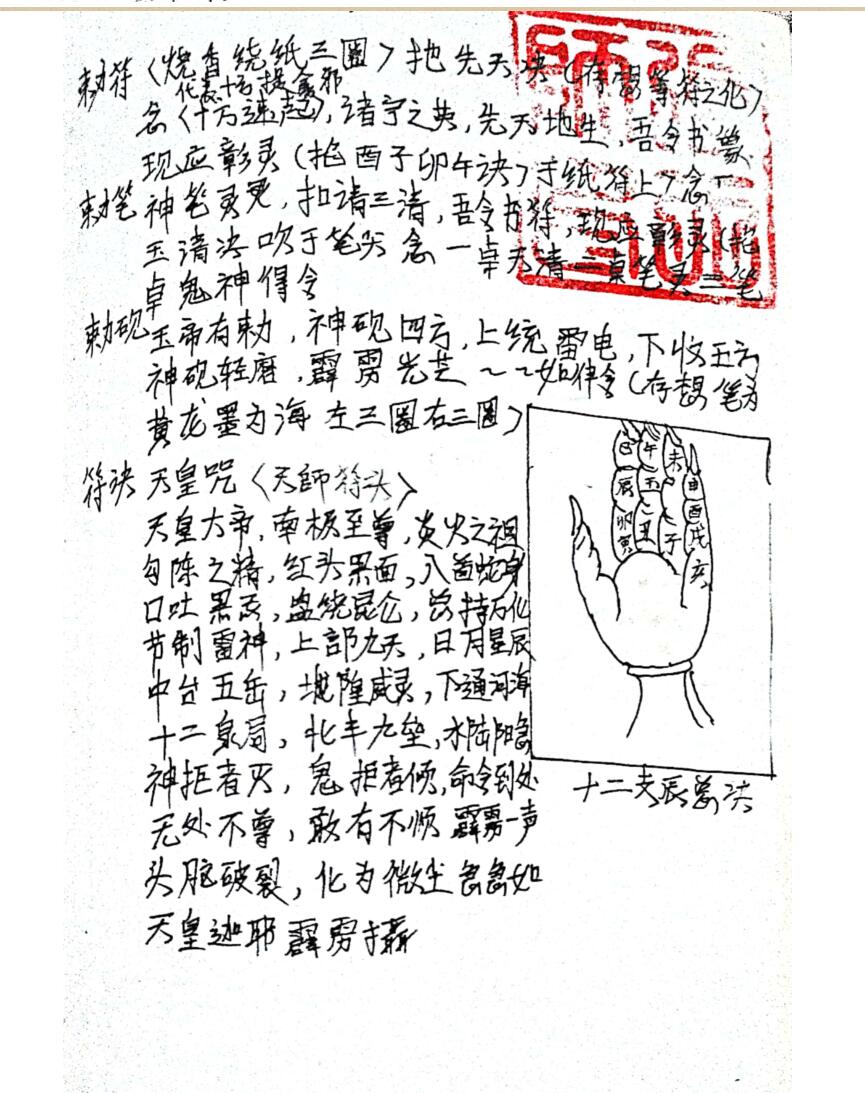 敕符〈烧香绕纸三圈〉抱先天决(存想等符之化)
念〈十万速起〉,诸字之英,先天地生,吾令书篆
现应彰灵(掐酉子卯午诀)于纸符上
敕笔 神笔灵灵,扣请三清,吾令书符,现应彰灵(掐
玉清决吹于笔尖 念 一卓天清二卓笔灵三笔
卓鬼神得令
敕砚 玉帝有敕,神砚四方,上统雷电,下收五方
神砚轻磨,霹雳光芒~~如律令(存想笔为
黄龙墨为海 左三圈右三圈)
符诀 天皇咒〈天師符头〉
天皇大帝,南极至尊,炎火之祖
勾陈之精,红头黑面,八首蛇身
口吐黑炁,盘绕昆仑,总持万化
节制雷神,上部九天,日月星辰
中台五岳,地隍威灵,下通河海
十二泉局,北丰九垒,水陆阴
神拒者灭,鬼拒者倾,命令到处
无处不尊,敢有不顺 霹雳一声
头脑破裂,化为微尘 急急如
天皇迦耶 霹雳摄
巳 午 未 申
辰 玉 酉
卯 丑 子 戌
寅 亥
十二支辰总决